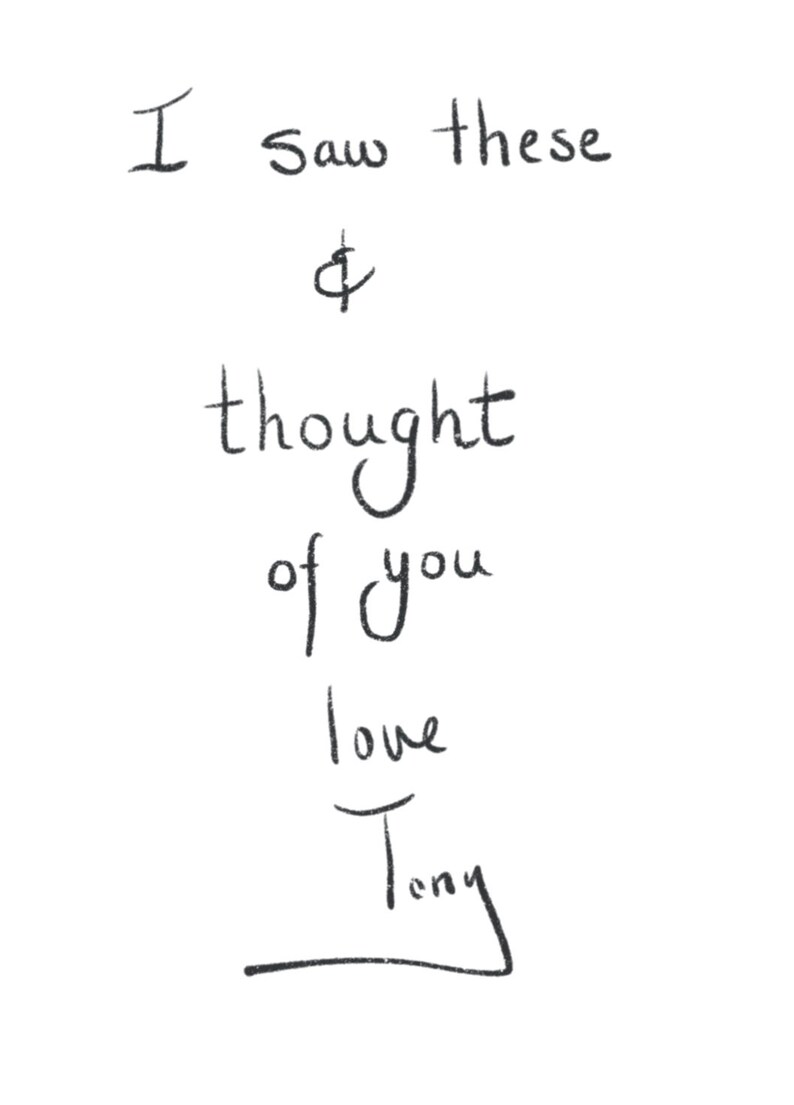 I saw these
&
thought
of you
love
Tony